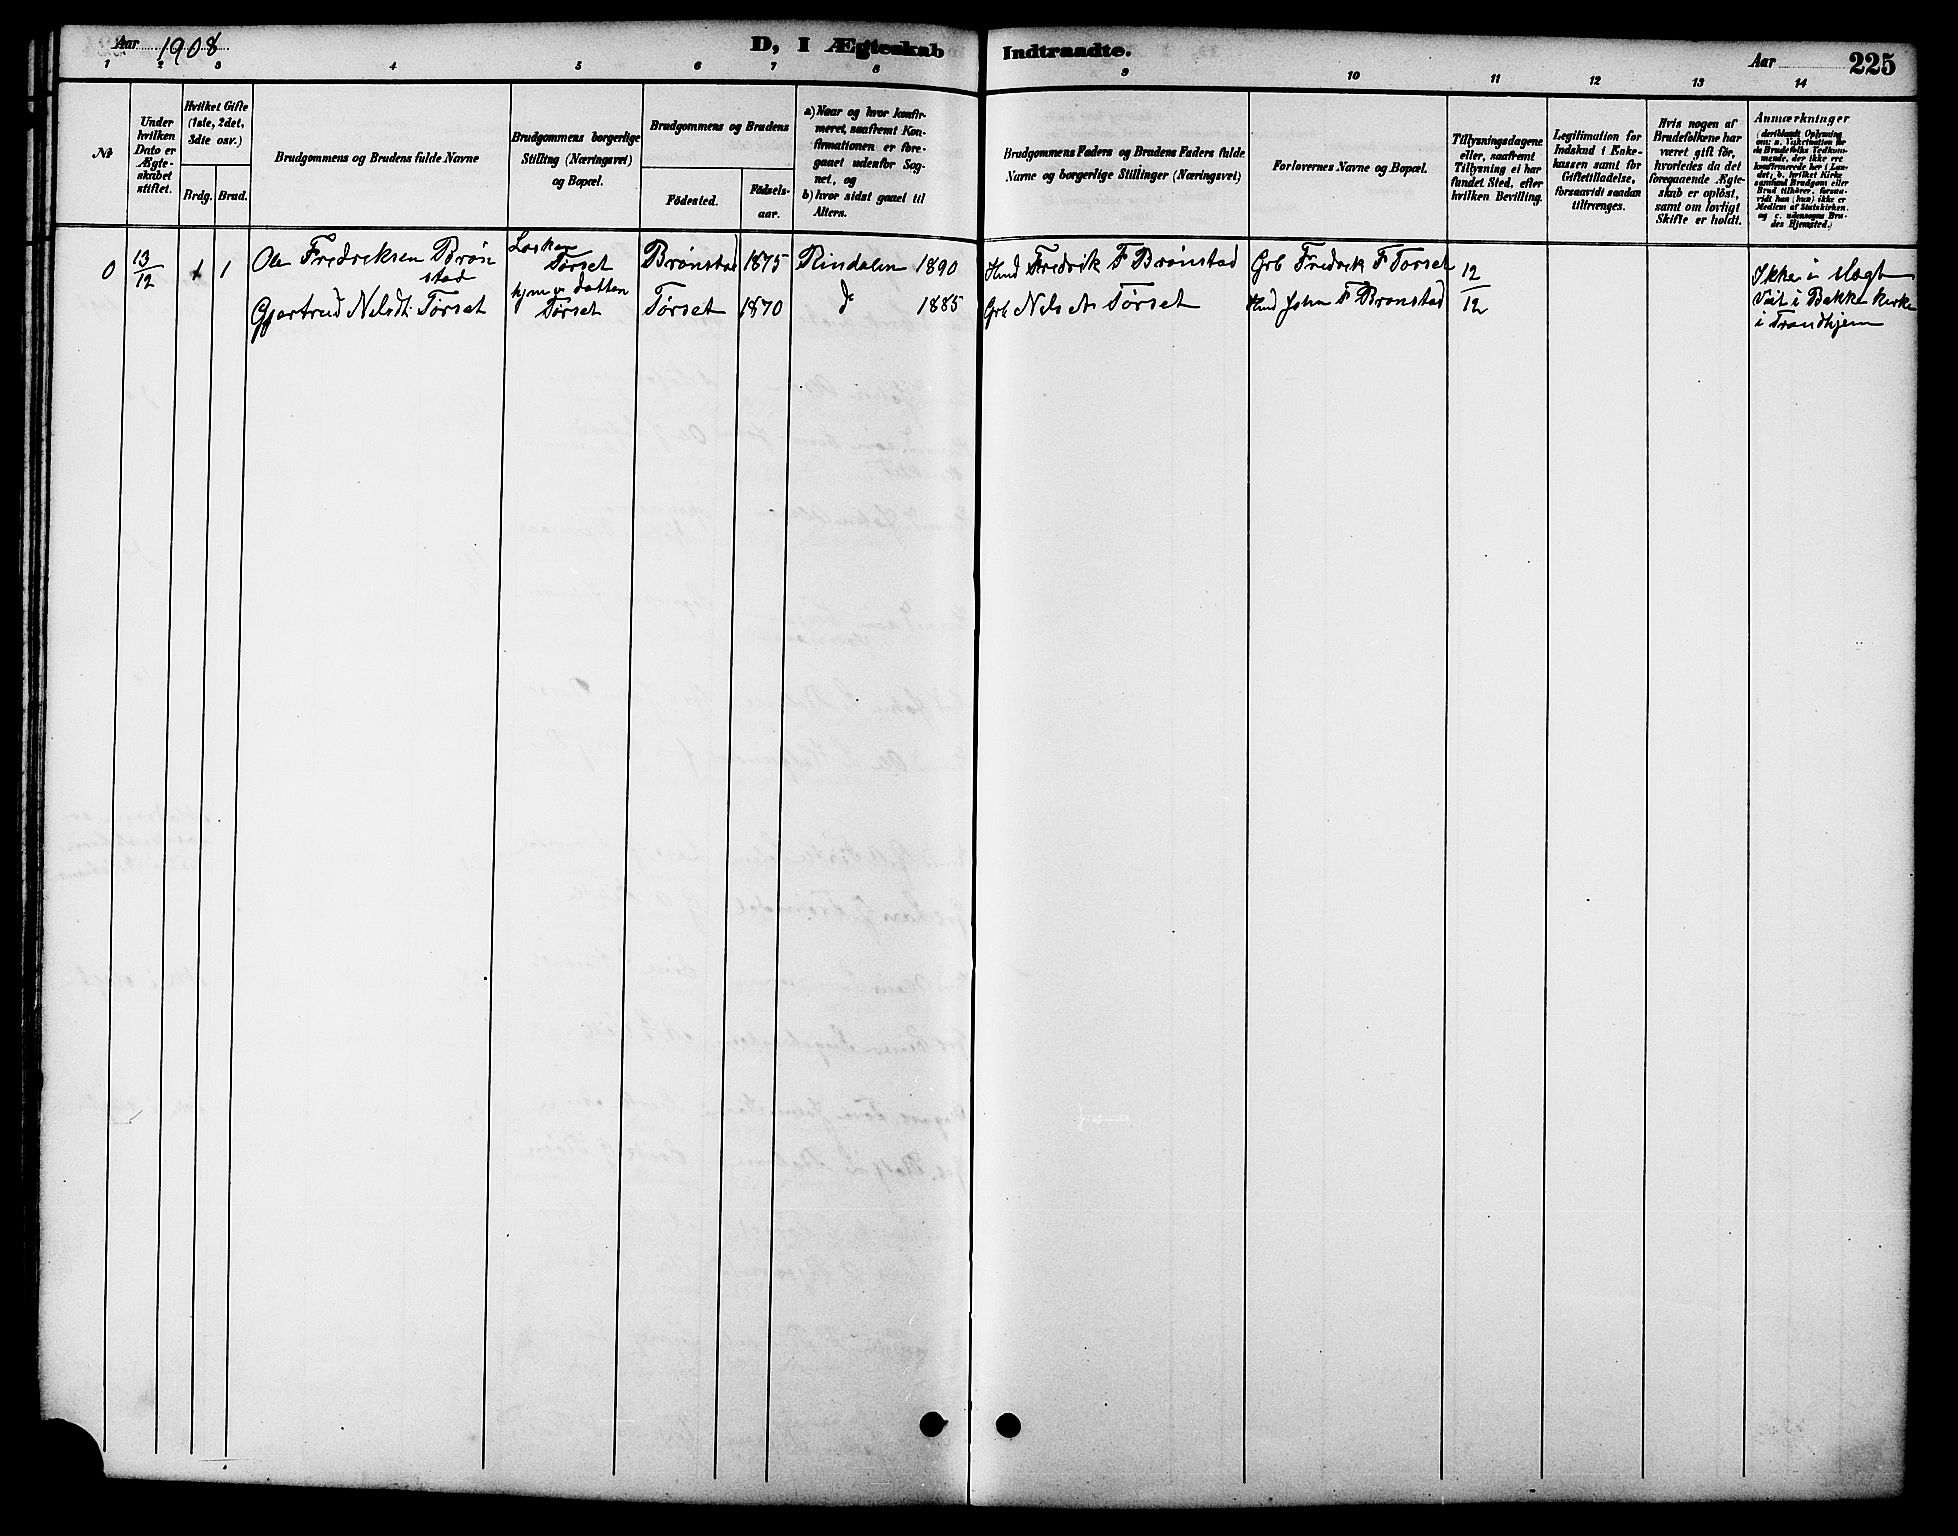 Aar 1908
D, I Ægteskab
Indtraadte.
Aar
225
1 2 3 4 5 6 7 8 9 10 11 12 13 14
No
Under hvilken Dato er Ægteskabet stiftet.
Hvilket Gifte (1ste, 2det, 3die osv.)
Brdg. Brud.
Brudgommens og Brudens fulde Navne
Brudgommens borgerlige Stilling (Næringsvei) og Bopæl.
Brudgommens og Brudens
Födested. Födselsaar.
a) Naar og hvor konfirmeret, saafremt Konfirmationen er foregaaet udenfor Sognet, og
b) hvor sidst gaaet til Alters.
Brudgommens Faders og Brudens Faders fulde Navne og borgerlige Stillinger (Næringsvei)
Forlovernes Navne og Bopæl.
Tillysningsdagene eller, saafremt Tillysning ei har fundet Sted, efter hvilken Bevilling.
Legitimation for Indskud i Enkekassen samt for Giftetilladelse, forsaavidt saadan tiltrænges.
Hvis nogen af Brudefolkene har været gift för, hvorledes da det foregaaende Ægteskab er oplöst, samt om lovligt Skifte er holdt.
Anmærkninger
(deriblandt Oplysning om: a. Vakcination for de Brudefolks Vedkommende, der ikke ere konfirmerede her i Landet; b. hvilket Kirkesamfund Brudgom eller Brud tilhörer, forsaavidt han (hun) ikke er Medlem af Statskirken, og c. udensogns Brudes Hjemsted.)
0 13/12 1 1 Ole Fredriksen Brönstad
Törset Brönstad 1875 Rindalen 1890
Fredrik F Brönstad Grb Fredrik F Törset 12/12
Ikke i slægt
Gjertrud Nilsdt. Törset
Törset Törset 1870 do 1885
Grb Nils A Törset John F Brönstad
Viet i Bakke Kirke
i Trondhjem